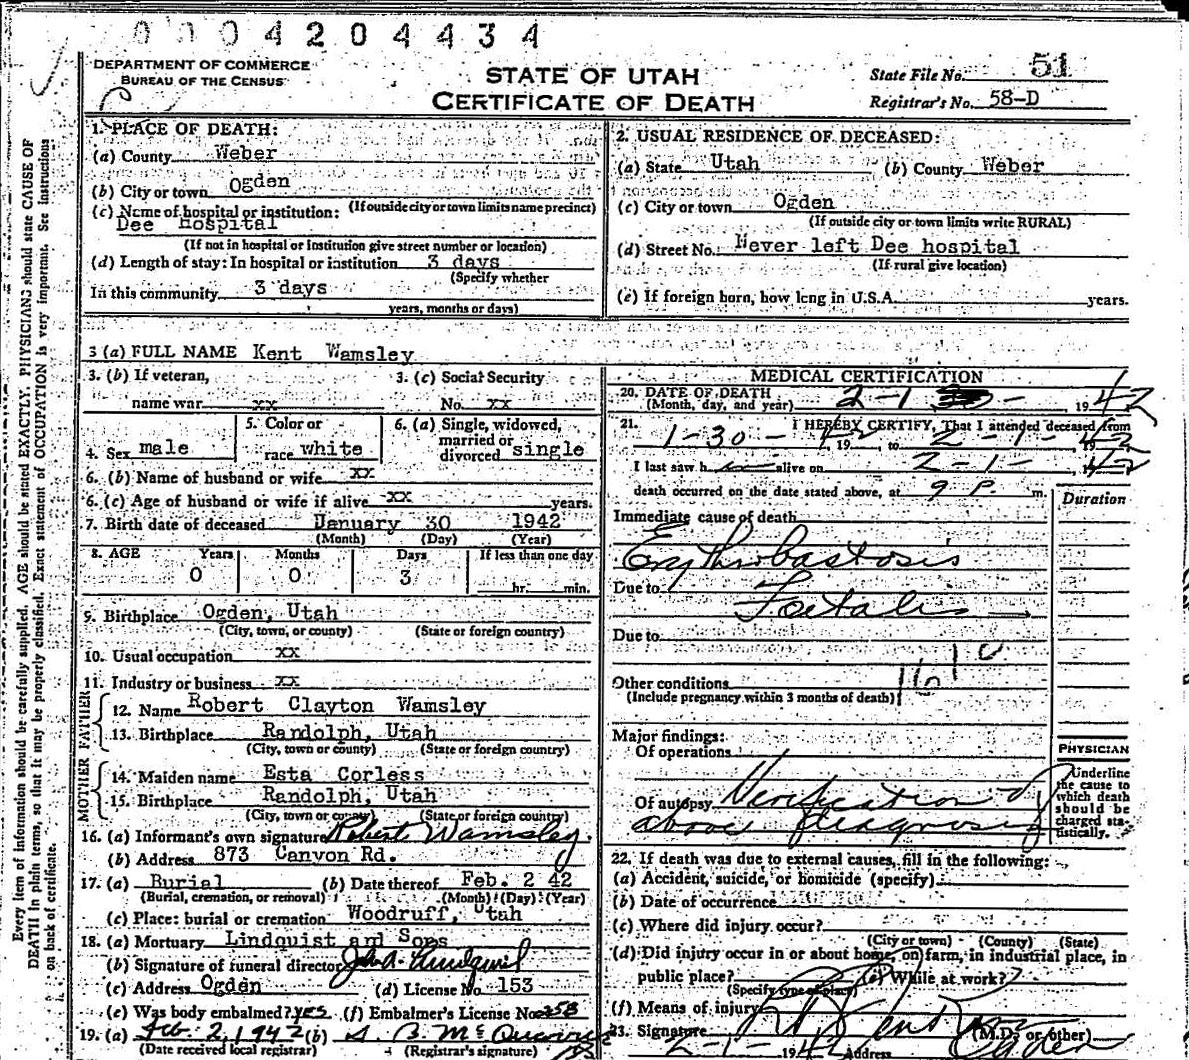 0004204434
DEPARTMENT OF COMMERCE
BUREAU OF THE CENSUS
STATE OF UTAH
CERTIFICATE OF DEATH
State File No. 51
Registrar's No. 58-D
Every item of information should be carefully supplied. AGE should be stated EXACTLY. PHYSICIANS should state CAUSE OF
DEATH in plain terms, so that it may be properly classified. Exact statement of OCCUPATION is very important. See Instructions
on back of certificate.
1. PLACE OF DEATH:
(a) County Weber
(b) City or town Ogden
(If outside city or town limits name precinct)
(c) Name of hospital or institution:
Dee Hospital
(If not in hospital or institution give street number or location)
(d) Length of stay: In hospital or institution 3 days
(Specify whether
In this community 3 days
years, months or days)
2. USUAL RESIDENCE OF DECEASED:
(a) State Utah (b) County Weber
(c) City or town Ogden
(If outside city or town limits write RURAL)
(d) Street No. Never left Dee hospital
(If rural give location)
(e) If foreign born, how long in U.S.A. years.
3 (a) FULL NAME Kent Wamsley
3. (b) If veteran, 3. (c) Social Security
name war xx No. xx
4. Sex male
5. Color or
race white
6. (a) Single, widowed,
married or
divorced single
6. (b) Name of husband or wife xx
6. (c) Age of husband or wife if alive xx years.
7. Birth date of deceased January 30 1942
(Month) (Day) (Year)
8. AGE Years Months Days If less than one day
0 0 3 hr. min.
9. Birthplace Ogden, Utah
(City, town, or county) (State or foreign country)
10. Usual occupation xx
11. Industry or business xx
FATHER
12. Name Robert Clayton Wamsley
13. Birthplace Randolph, Utah
(City, town or county) (State or foreign country)
MOTHER
14. Maiden name Esta Corless
15. Birthplace Randolph, Utah
(City, town or county) (State or foreign country)
16. (a) Informant's own signature Robert Wamsley.
(b) Address 873 Canyon Rd.
17. (a) Burial (b) Date thereof Feb. 2 42
(Burial, cremation, or removal) (Month) (Day) (Year)
(c) Place: burial or cremation Woodruff, Utah
18. (a) Mortuary Lindquist and Sons
(b) Signature of funeral director John A. Lindquist
(c) Address Ogden (d) License No 153
(e) Was body embalmed? yes (f) Embalmer's License No 258
19. (a) Feb. 2, 1942 (b)
(Date received local registrar) (Registrar's signature)
MEDICAL CERTIFICATION
20. DATE OF DEATH
(Month, day, and year) 2-1- 1942
21. I HEREBY CERTIFY, That I attended deceased from
1-30-42, 19 , to 2-1-42
I last saw h alive on 2-1-, 1942
death occurred on the date stated above, at 9 P. m.
Duration
Immediate cause of death
Erythroblastosis
Due to Foetalis
Due to
Other conditions
(Include pregnancy within 3 months of death)
Major findings:
Of operations
Of autopsy Verification of
above diagnosis
PHYSICIAN
Underline
the cause to
which death
should be
charged sta-
tistically.
22. If death was due to external causes, fill in the following:
(a) Accident, suicide, or homicide (specify)
(b) Date of occurrence
(c) Where did injury occur?
(City or town) (County) (State)
(d) Did injury occur in or about home, on farm, in industrial place, in
public place? (e) While at work?
(Specify type of place)
(f) Means of injury
23. Signature (M.D. or other)
2-1-1942 Address Ogden